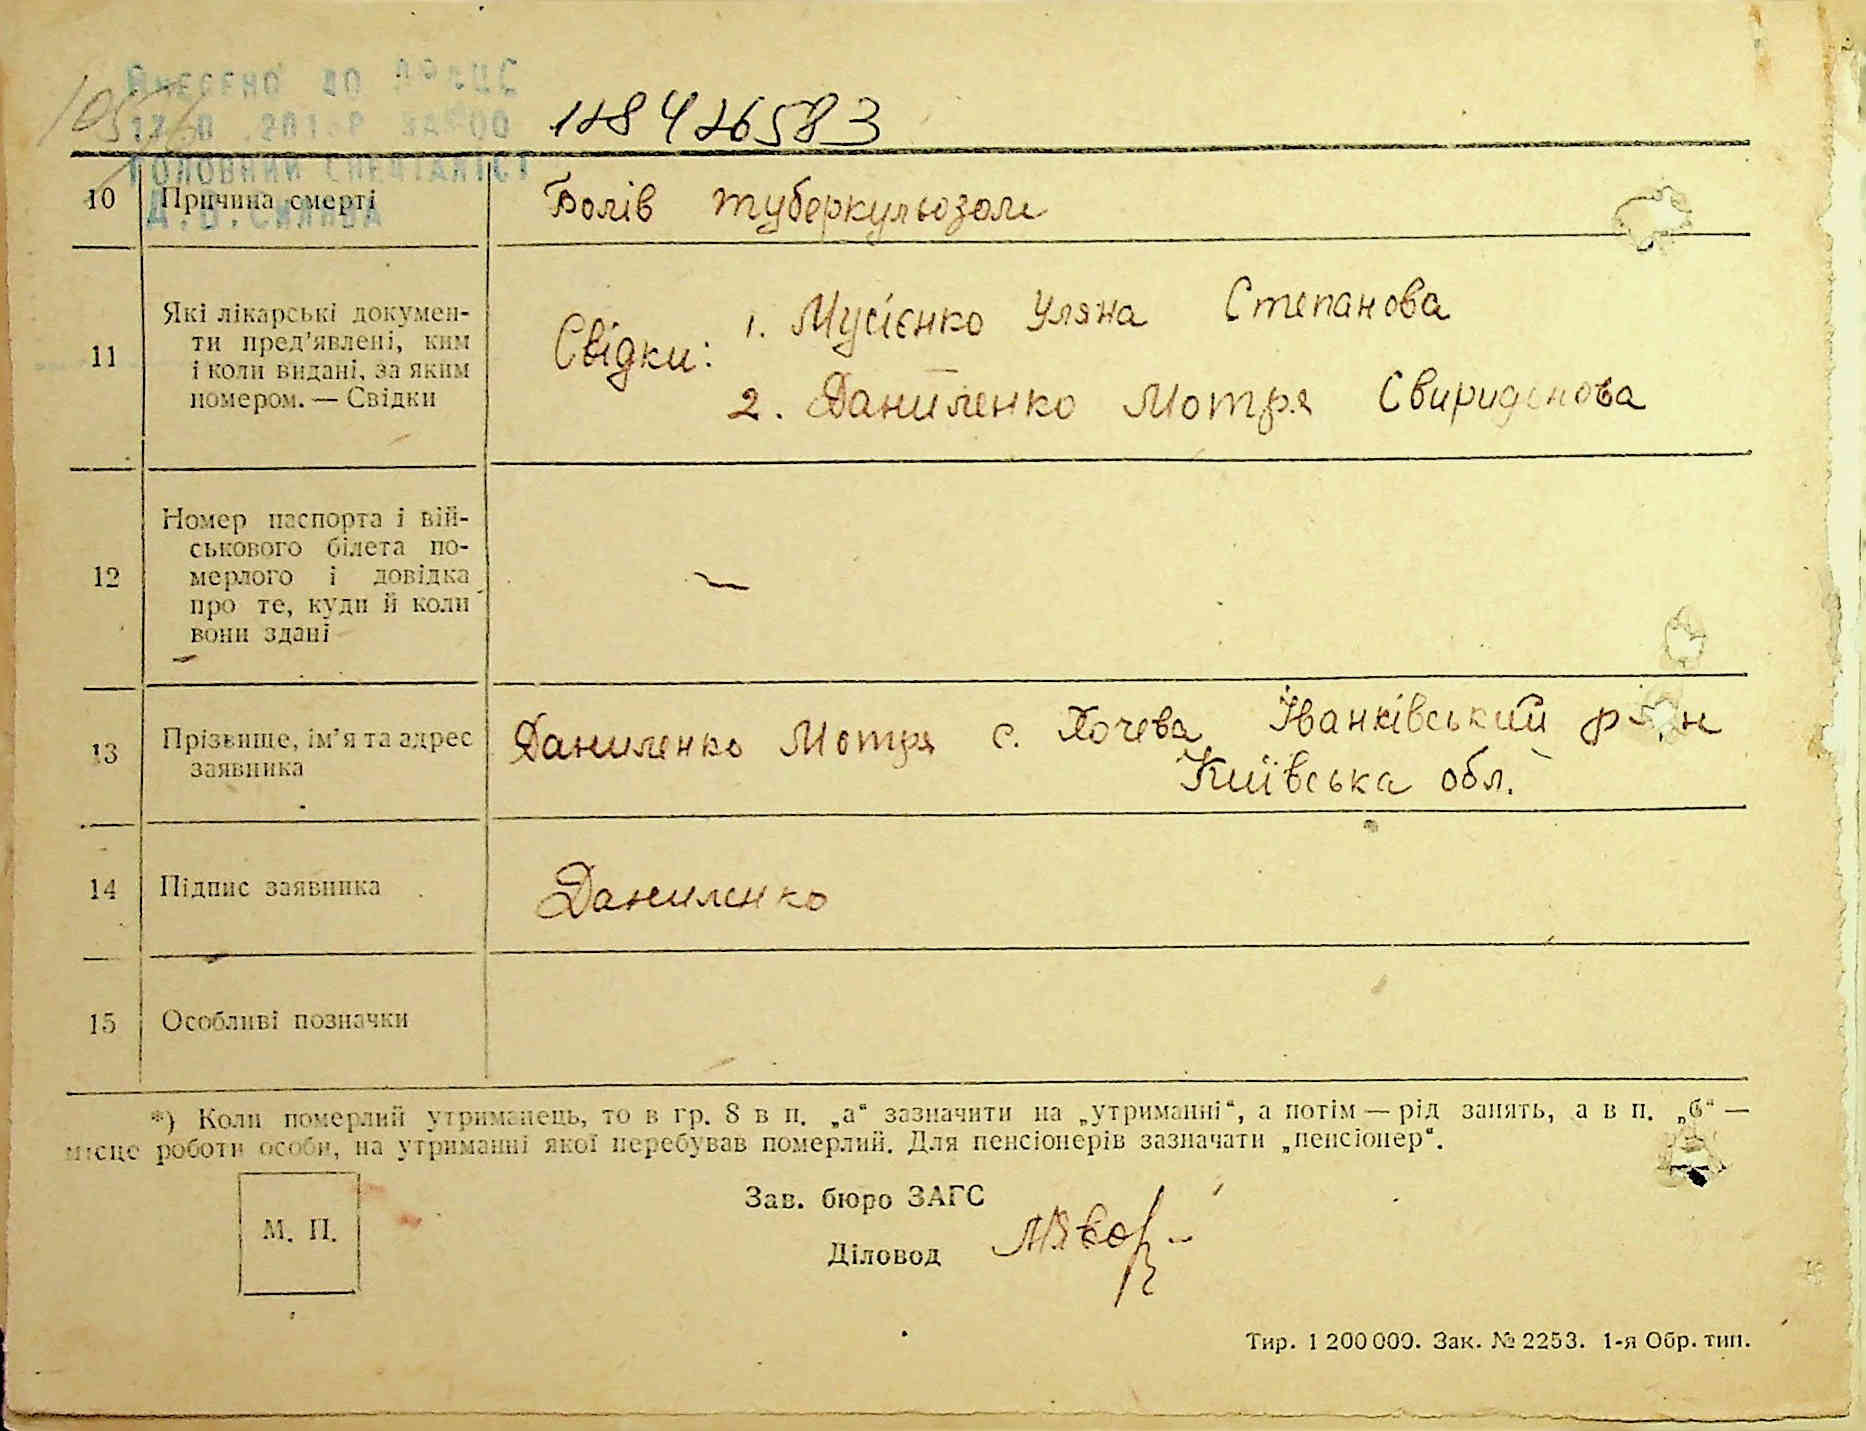 Внесено до
118426583
головний спеціаліст
10 Причина смерті Болів туберкульозом
11 Які лікарські докумен-
ти пред’явлені, ким
і коли видані, за яким
номером. — Свідки
Свідки: 1. Мусієнко Уляна Степанова
2. Даниленко Мотря Свиридонова
12 Номер паспорта і вій-
ськового білета по-
мерлого і довідка
про те, куди й коли
вони здані
—
13 Прізвище, ім’я та адрес
заявника
Даниленко Мотря с. Хочева Іванківський р-н
Київська обл.
14 Підпис заявника Даниленко
15 Особливі позначки
*) Коли померлий утриманець, то в гр. 8 в п. „а“ зазначити на „утриманні“, а потім — рід занять, а в п. „б“ —
місце роботи особи, на утриманні якої перебував померлий. Для пенсіонерів зазначати „пенсіонер“.
М. П.
Зав. бюро ЗАГС
Діловод
Тир. 1 200 000. Зак. № 2253. 1-я Обр. тип.